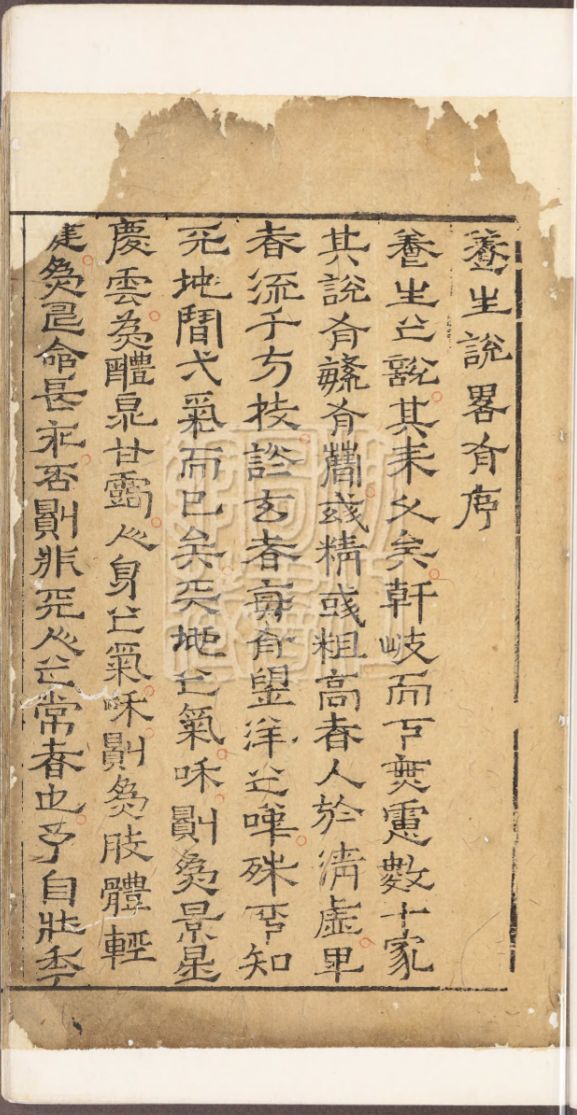 養生說畧有序
養生之說其来久矣軒岐而下無慮數十家
其說有繁有簡或精或粗高者入於清虛卑
者流于方技談玄者有望洋之嘆殊不知
天地間弌氣而已矣天地之氣和則為景星
慶雲為醴泉甘露人身之氣和則為肢體輕
健為命長永否則非天人之常者也予自壯季